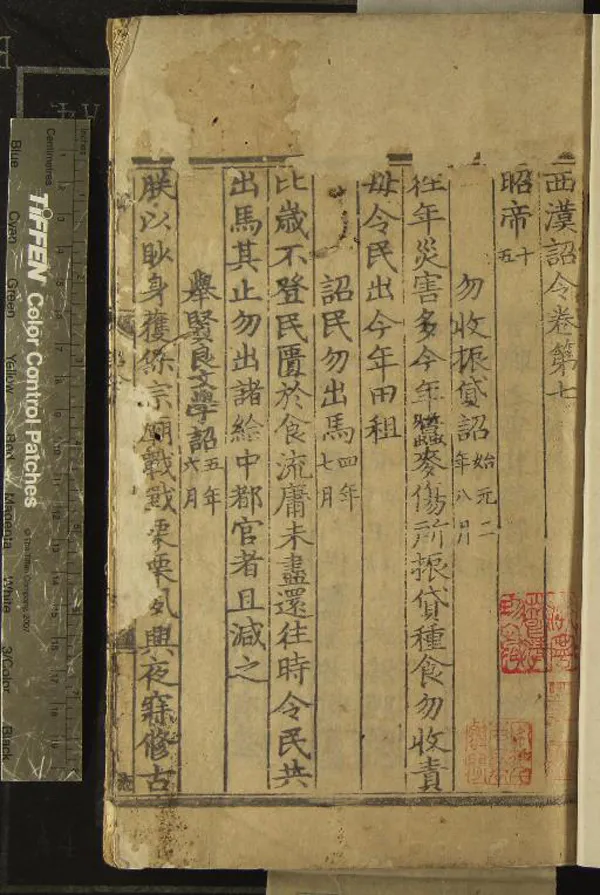 西漢詔令卷第七
昭帝十五
勿收振貸詔始元二年八月
往年災害多今年蠶麥傷所振貸種食勿收責
毋令民出今年田租
詔民勿出馬四年七月
比歲不登民匱於食流庸未盡還往時令民共
出馬其止勿出諸給中都官者且減之
舉賢良文學詔五年六月
朕以眇身獲保宗廟戰戰栗栗夙興夜寐修古
Inches
Centimetres
TIFFEN Color Control Patches
© The Tiffen Company, 2007
Blue
Cyan
Green
Yellow
Red
Magenta
White
3/Color
Black